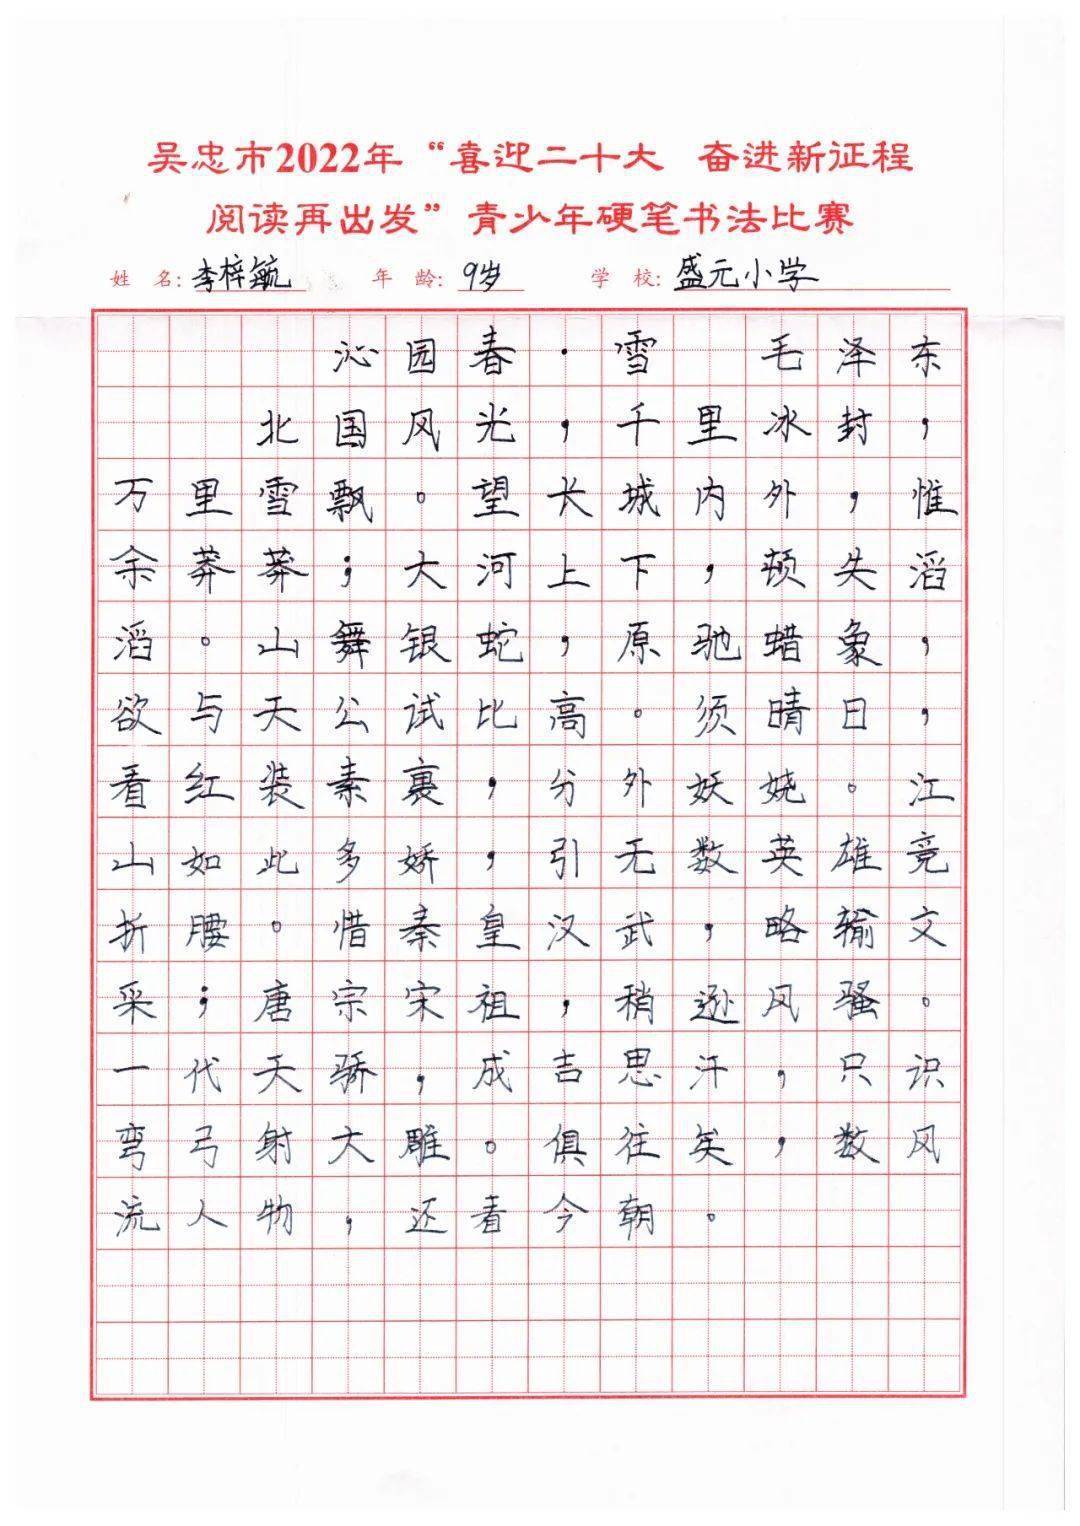 吴忠市2022年“喜迎二十大 奋进新征程
阅读再出发”青少年硬笔书法比赛
姓 名: 李梓毓 年 龄: 9岁 学 校: 盛元小学
沁园春·雪 毛泽东
北国风光,千里冰封,
万里雪飘。望长城内外,惟
余莽莽;大河上下,顿失滔
滔。山舞银蛇,原驰蜡象,
欲与天公试比高。须晴日,
看红装素裹,分外妖娆。江
山如此多娇,引无数英雄竞
折腰。惜秦皇汉武,略输文
采;唐宗宋祖,稍逊风骚。
一代天骄,成吉思汗,只识
弯弓射大雕。俱往矣,数风
流人物,还看今朝。